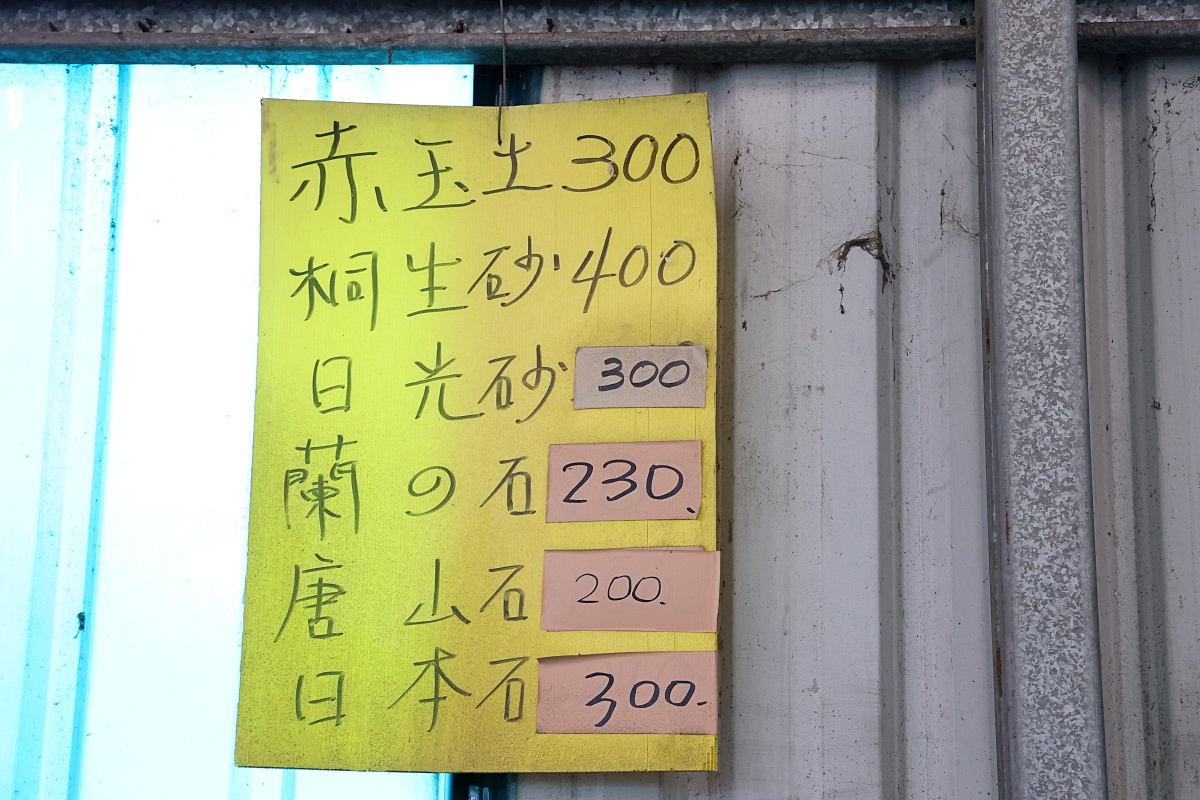 赤玉土300
桐生砂400
日光砂300
蘭の石230.
唐山石200.
日本石300.